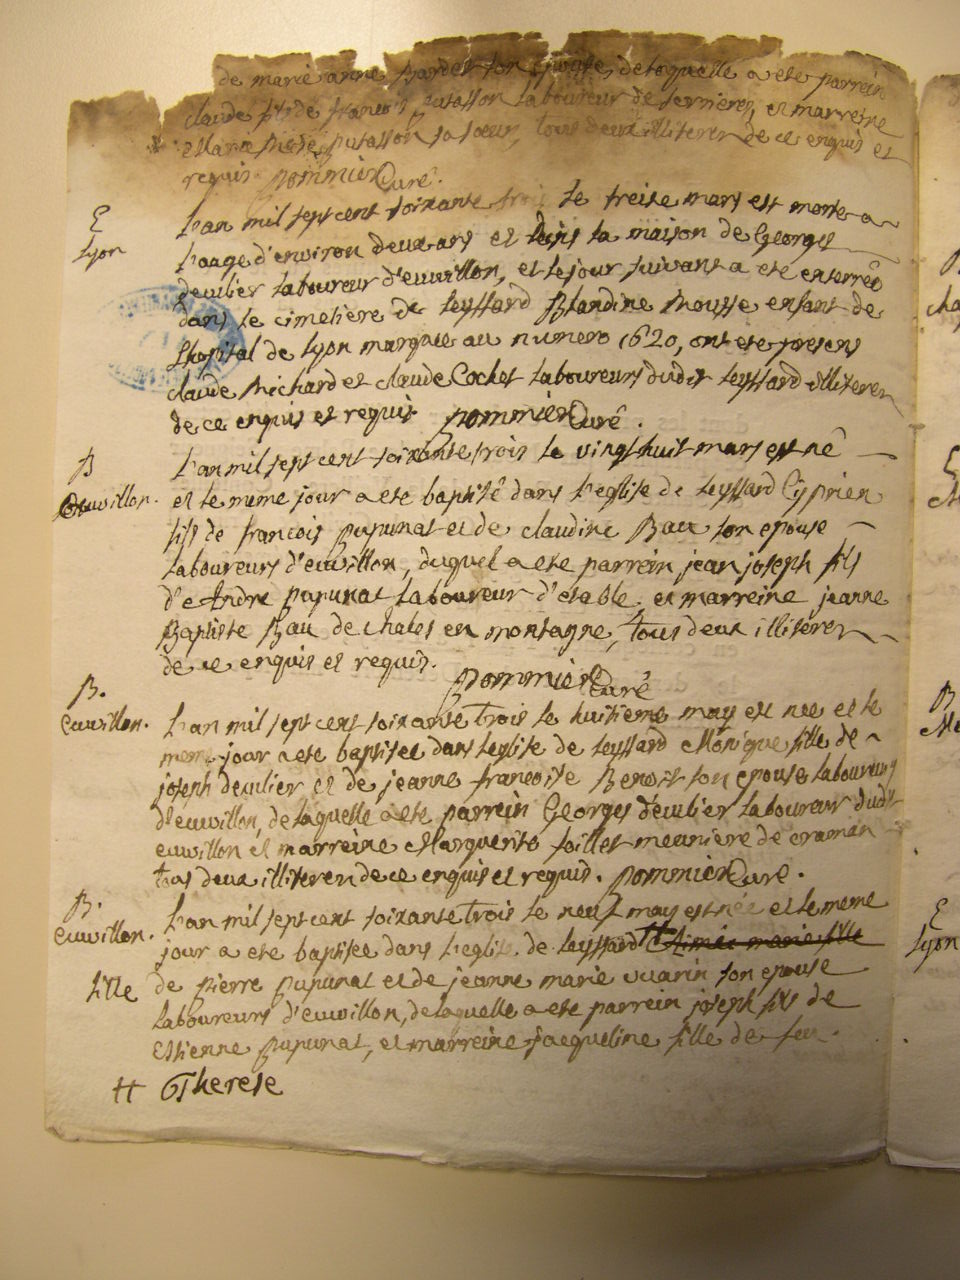 de marie anne son epouse, de laquelle a ete parrein
claude fils de francois putasson laboureur de serrieres, et marreine
Marie putasson sa soeur, tous deux illiteren de ce enquis et
requis. pommier Curé.
E
Lyon
L'an mil sept cent soixante trois le treise mars est morte a
l'aage d'environ deux ans et dans la maison de Georges
deculier laboureur d'euvillon, et le jour suivant a ete enterrée
dans le cimetière de leyssard Blandine mousse enfant de
l'hopital de lyon marquée au numero 1620, ont ete presens
claude michard et claude Cochet laboureurs dudit leyssard illiteren
de ce enquis et requis. pommier Curé.
B
Euvillon.
L'an mil sept cent soixante trois le vingt huit mars est né
et le meme jour a ete baptisé dans l'eglise de leyssard Cyprien
fils de francois pupunat et de claudine Bau son epouse
laboureurs d'euvillon, duquel a ete parrein jean joseph fils
d'Andre pupunat laboureur d'etable et marreine jeanne
Baptiste Bau de chales en montagne, tous deux illiteren
de ce enquis et requis.
pommier Curé
B.
euvillon.
L'an mil sept cent soixante trois le huitieme may est nee et le
meme jour a ete baptisee dans leglise de leyssard Monique fille de
joseph deculier et de jeanne francoise Benoit son epouse laboureurs
d'euvillon, de laquelle a ete parrein Georges deculier laboureur dudit
euvillon et marreine Marguerite foillet meuniere de craman
tous deux illiteren de ce enquis et requis. pommier Curé.
B.
euvillon.
L'an mil sept cent soixante trois le neuf may est née et le meme
jour a ete baptisée dans l'eglise de leyssard # Aimée marie fille
fille
de pierre pupunat et de jeanne marie vuarin son epouse
laboureurs d'euvillon, de laquelle a ete parrein joseph fils de
Estienne pupunat, et marreine jacqueline fille de feu
# Therese